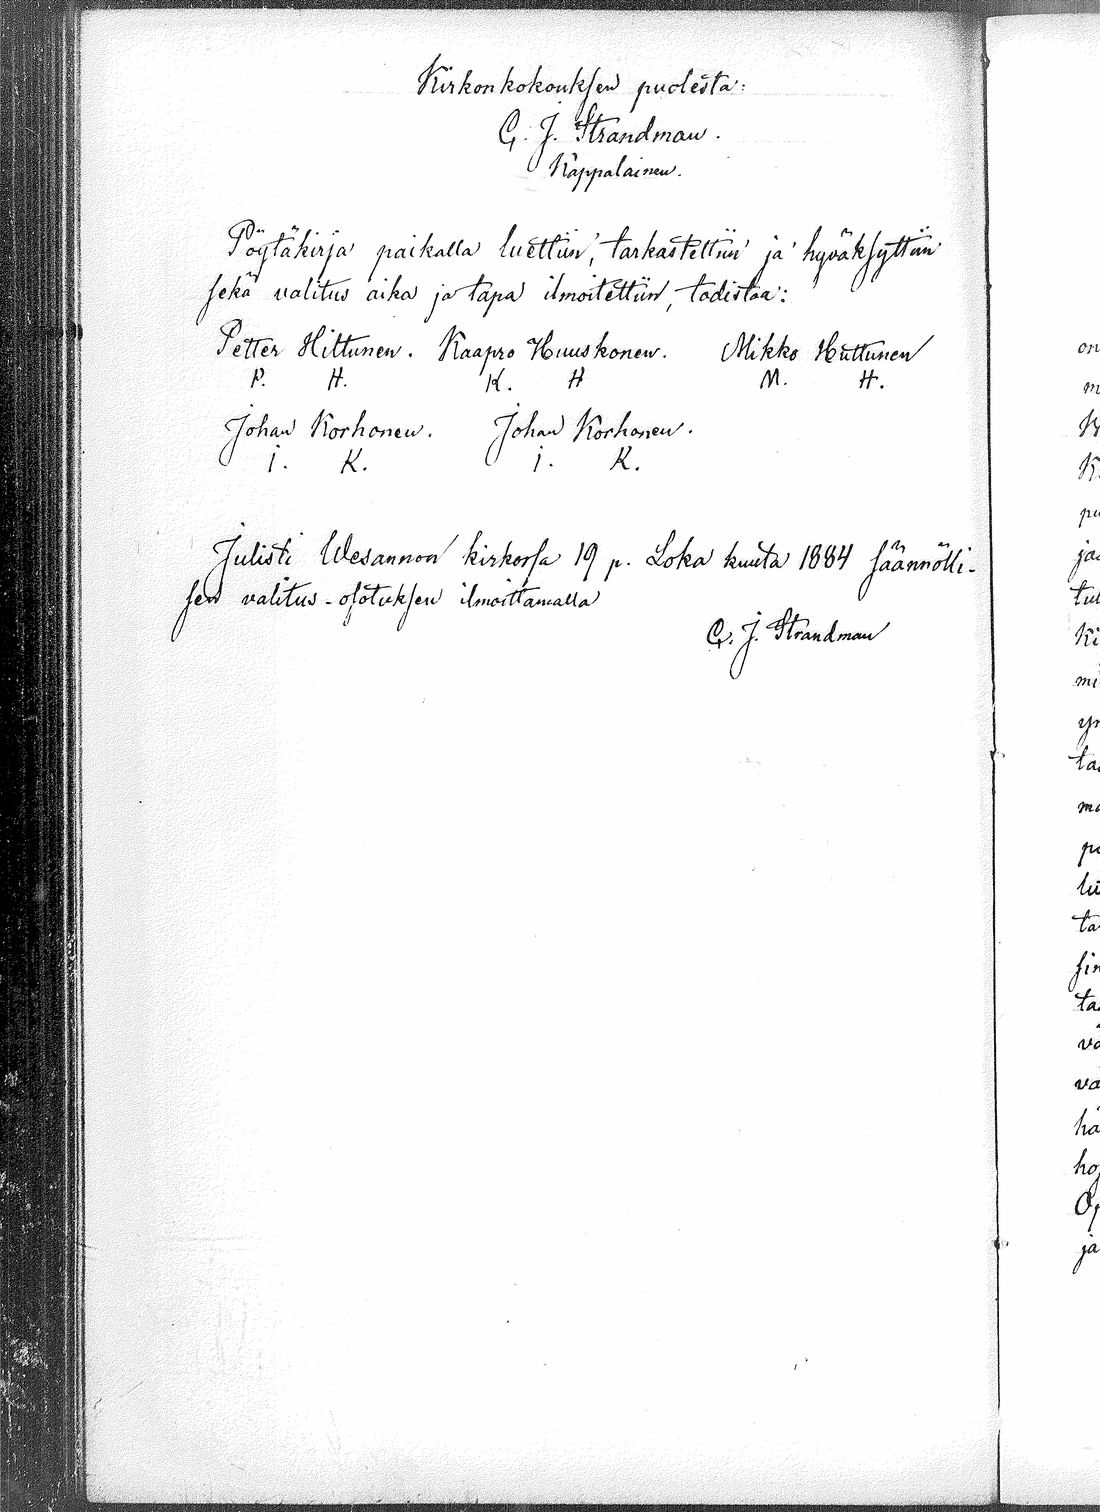 Kirkonkokouksen puolesta:
G. J. Strandman.
Kappalainen.
Pöytäkirja paikalla luettiin, tarkastettiin ja hyväksyttiin
sekä valitus aika ja tapa ilmoitettiin, todistaa:
Petter Hiltunen. Kaapro Huuskonen. Mikko Huttunen
P. H. K. H M. H.
Johan Korhonen. Johan Korhonen.
J. K. J. K.
Julisti Wesannon kirkossa 19 p. Loka kuuta 1884 säännölli-
sen valitus-osotuksen ilmoittamalla
G. J. Strandman